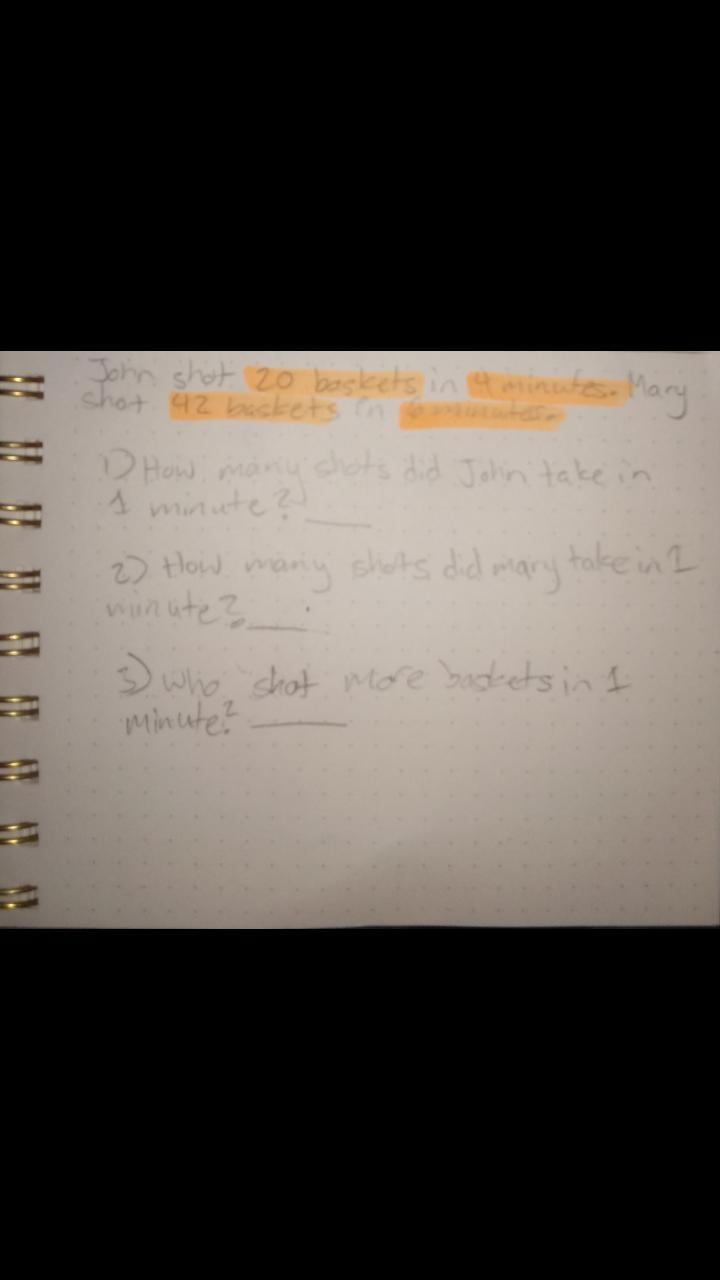 John shot 20 baskets in 4 minutes. Mary
shot 42 baskets in 6 minutes.
1) How many shots did John take in
1 minute? ___
2) How many shots did mary take in 1
minute? ___
3) Who shot more baskets in 1
minute? ___